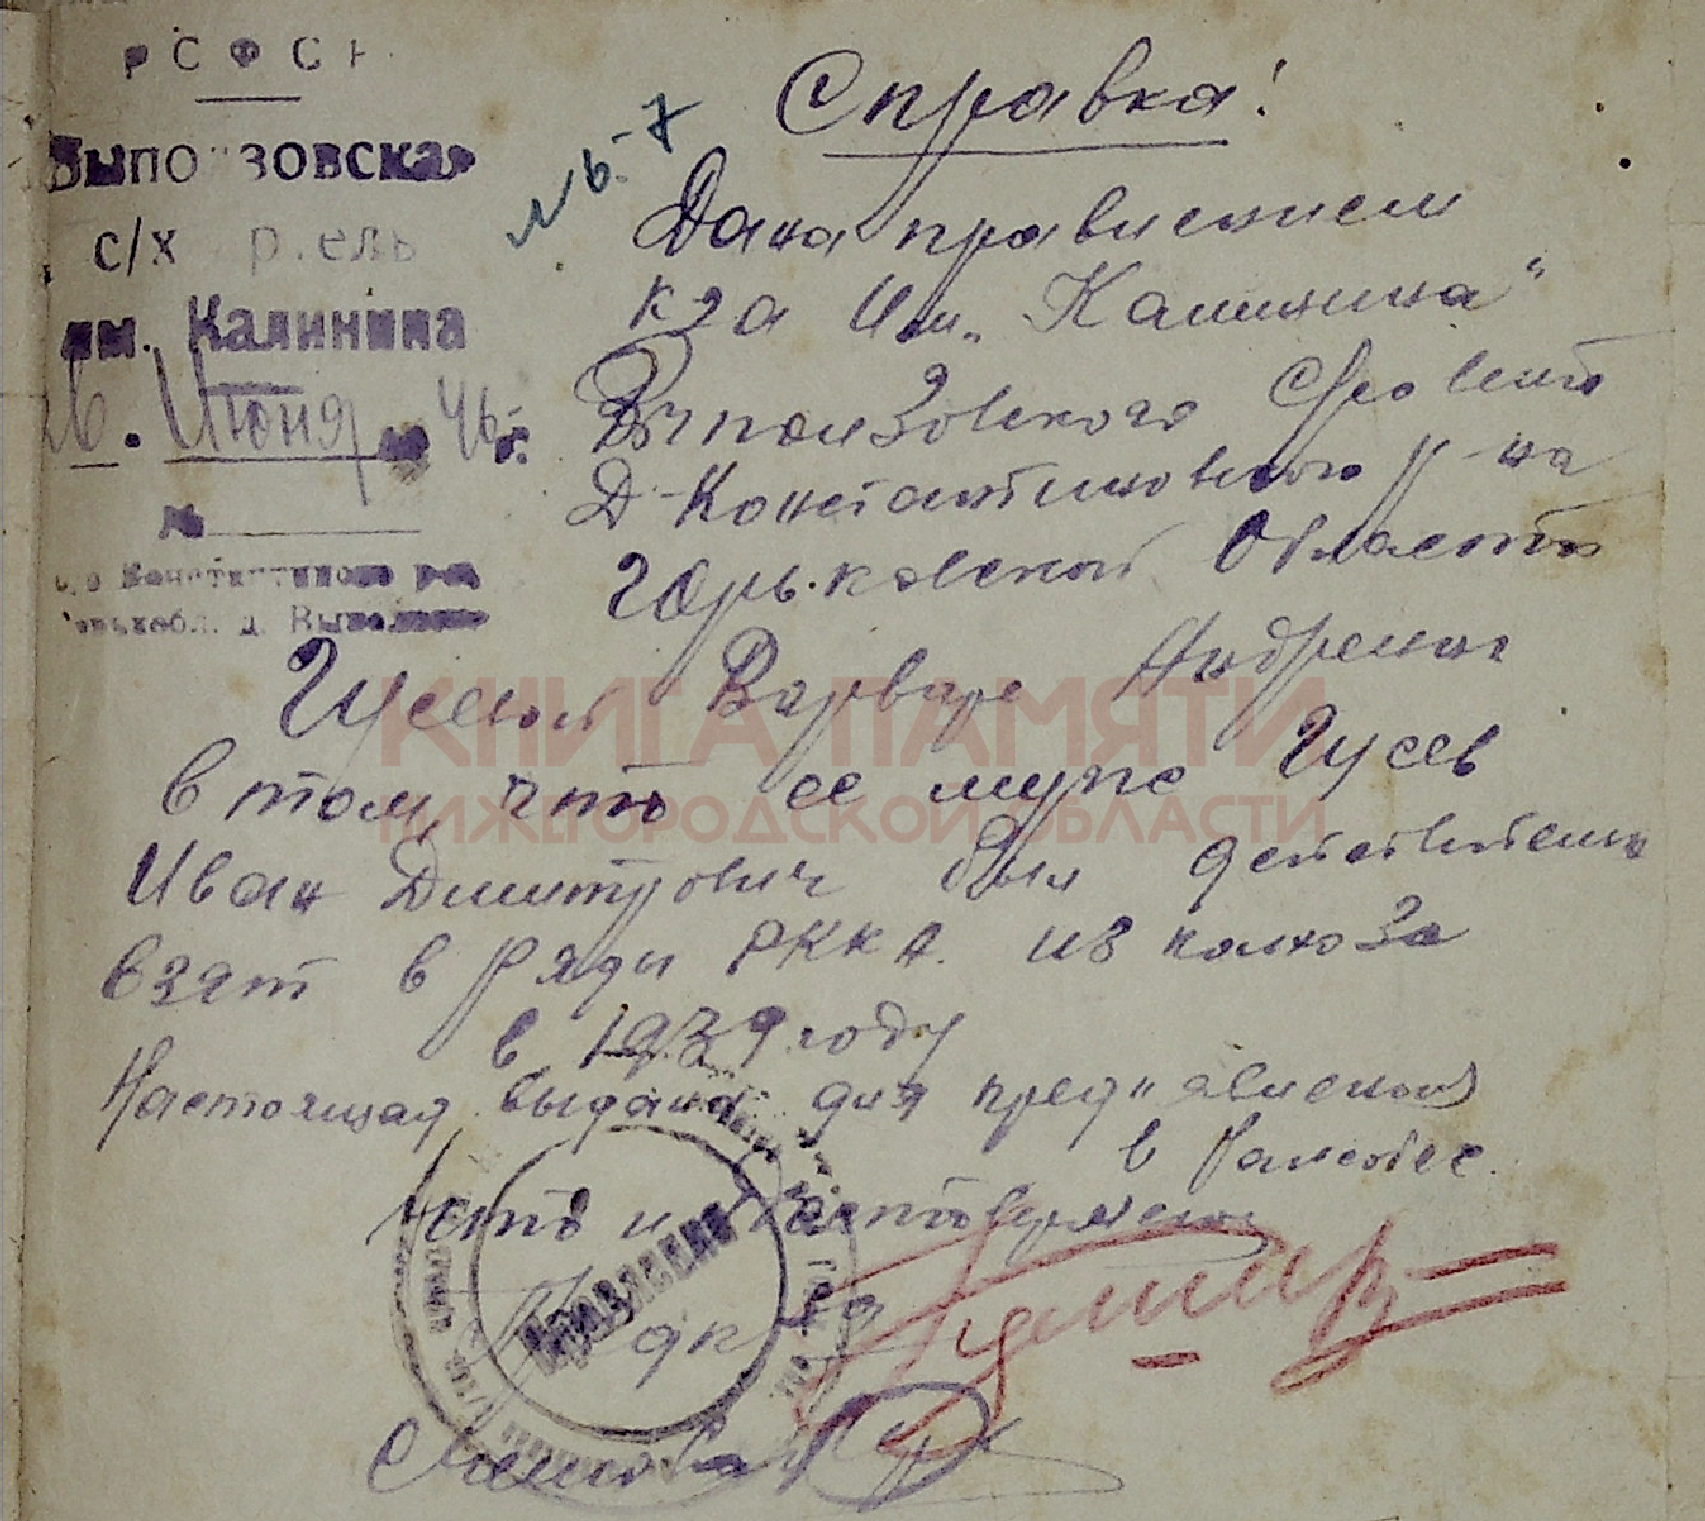 РСФСР
Выползовская
с/х артель
им. Калинина
26. Июня 46 г.
№
Д-Константиновс. р-на
Горьк.обл. д. Выползово
№ 6.-7
Справка!
Дана правлением
К-за Им. "Калинина"
Выползовского с/совета
Д-Константиновского р-на
Горьковской области
Гусевой Варваре Андреевне
в том, что ее муже Гусев
Иван Дмитрович был действительно
взят в ряды РККА. из колхоза
в 1939 году
Настоящая выдана для пред"явления
в
что и
Правление
Пред к-за
КНИГА ПАМЯТИ
НИЖЕГОРОДСКОЙ ОБЛАСТИ